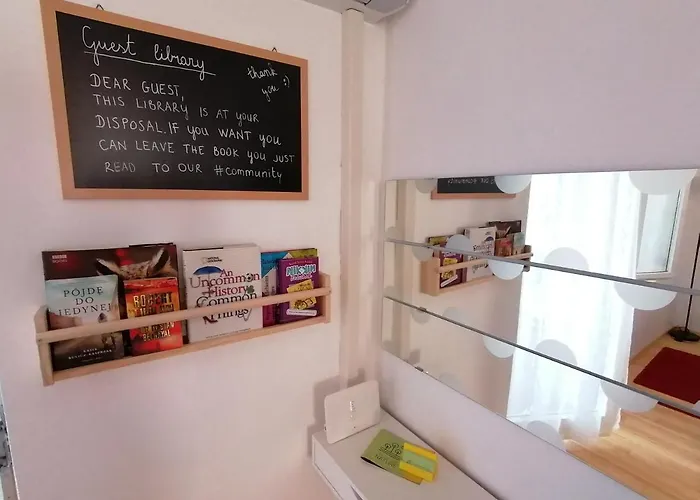 Guest library
thank
you :)
DEAR GUEST,
THIS LIBRARY IS AT YOUR
DISPOSAL. IF YOU WANT YOU
CAN LEAVE THE BOOK YOU JUST
READ TO OUR #community
BBC
PÓJDĘ DO
JEDYNEJ
ROBERT
NATIONAL GEOGRAPHIC
An
Uncommon
History of
Common
Things